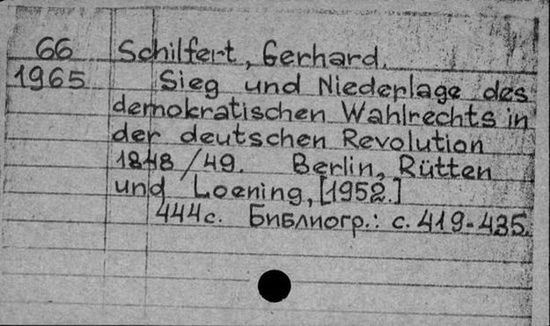 66 Schilfert, Gerhard.
1965 Sieg und Niederlage des
demokratischen Wahlrechts in
der deutschen Revolution
1848/49. Berlin, Rütten
und Loening, [1952.]
444 с. Библиогр.: с. 419-435.